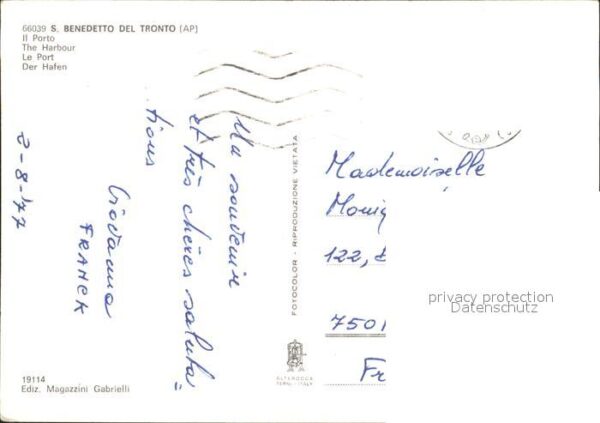 66039 S. BENEDETTO DEL TRONTO (AP)
Il Porto
The Harbour
Le Port
Der Hafen
2-8-'77
Un souvenir
et très chères saluta=
tions
Giovanna
FRANCK
FOTOCOLOR - RIPRODUZIONE VIETATA
Mademoiselle
Moniq
122,
7501
Fr
privacy protection
Datenschutz
ALTEROCCA
TERNI - ITALY
19114
Ediz. Magazzini Gabrielli